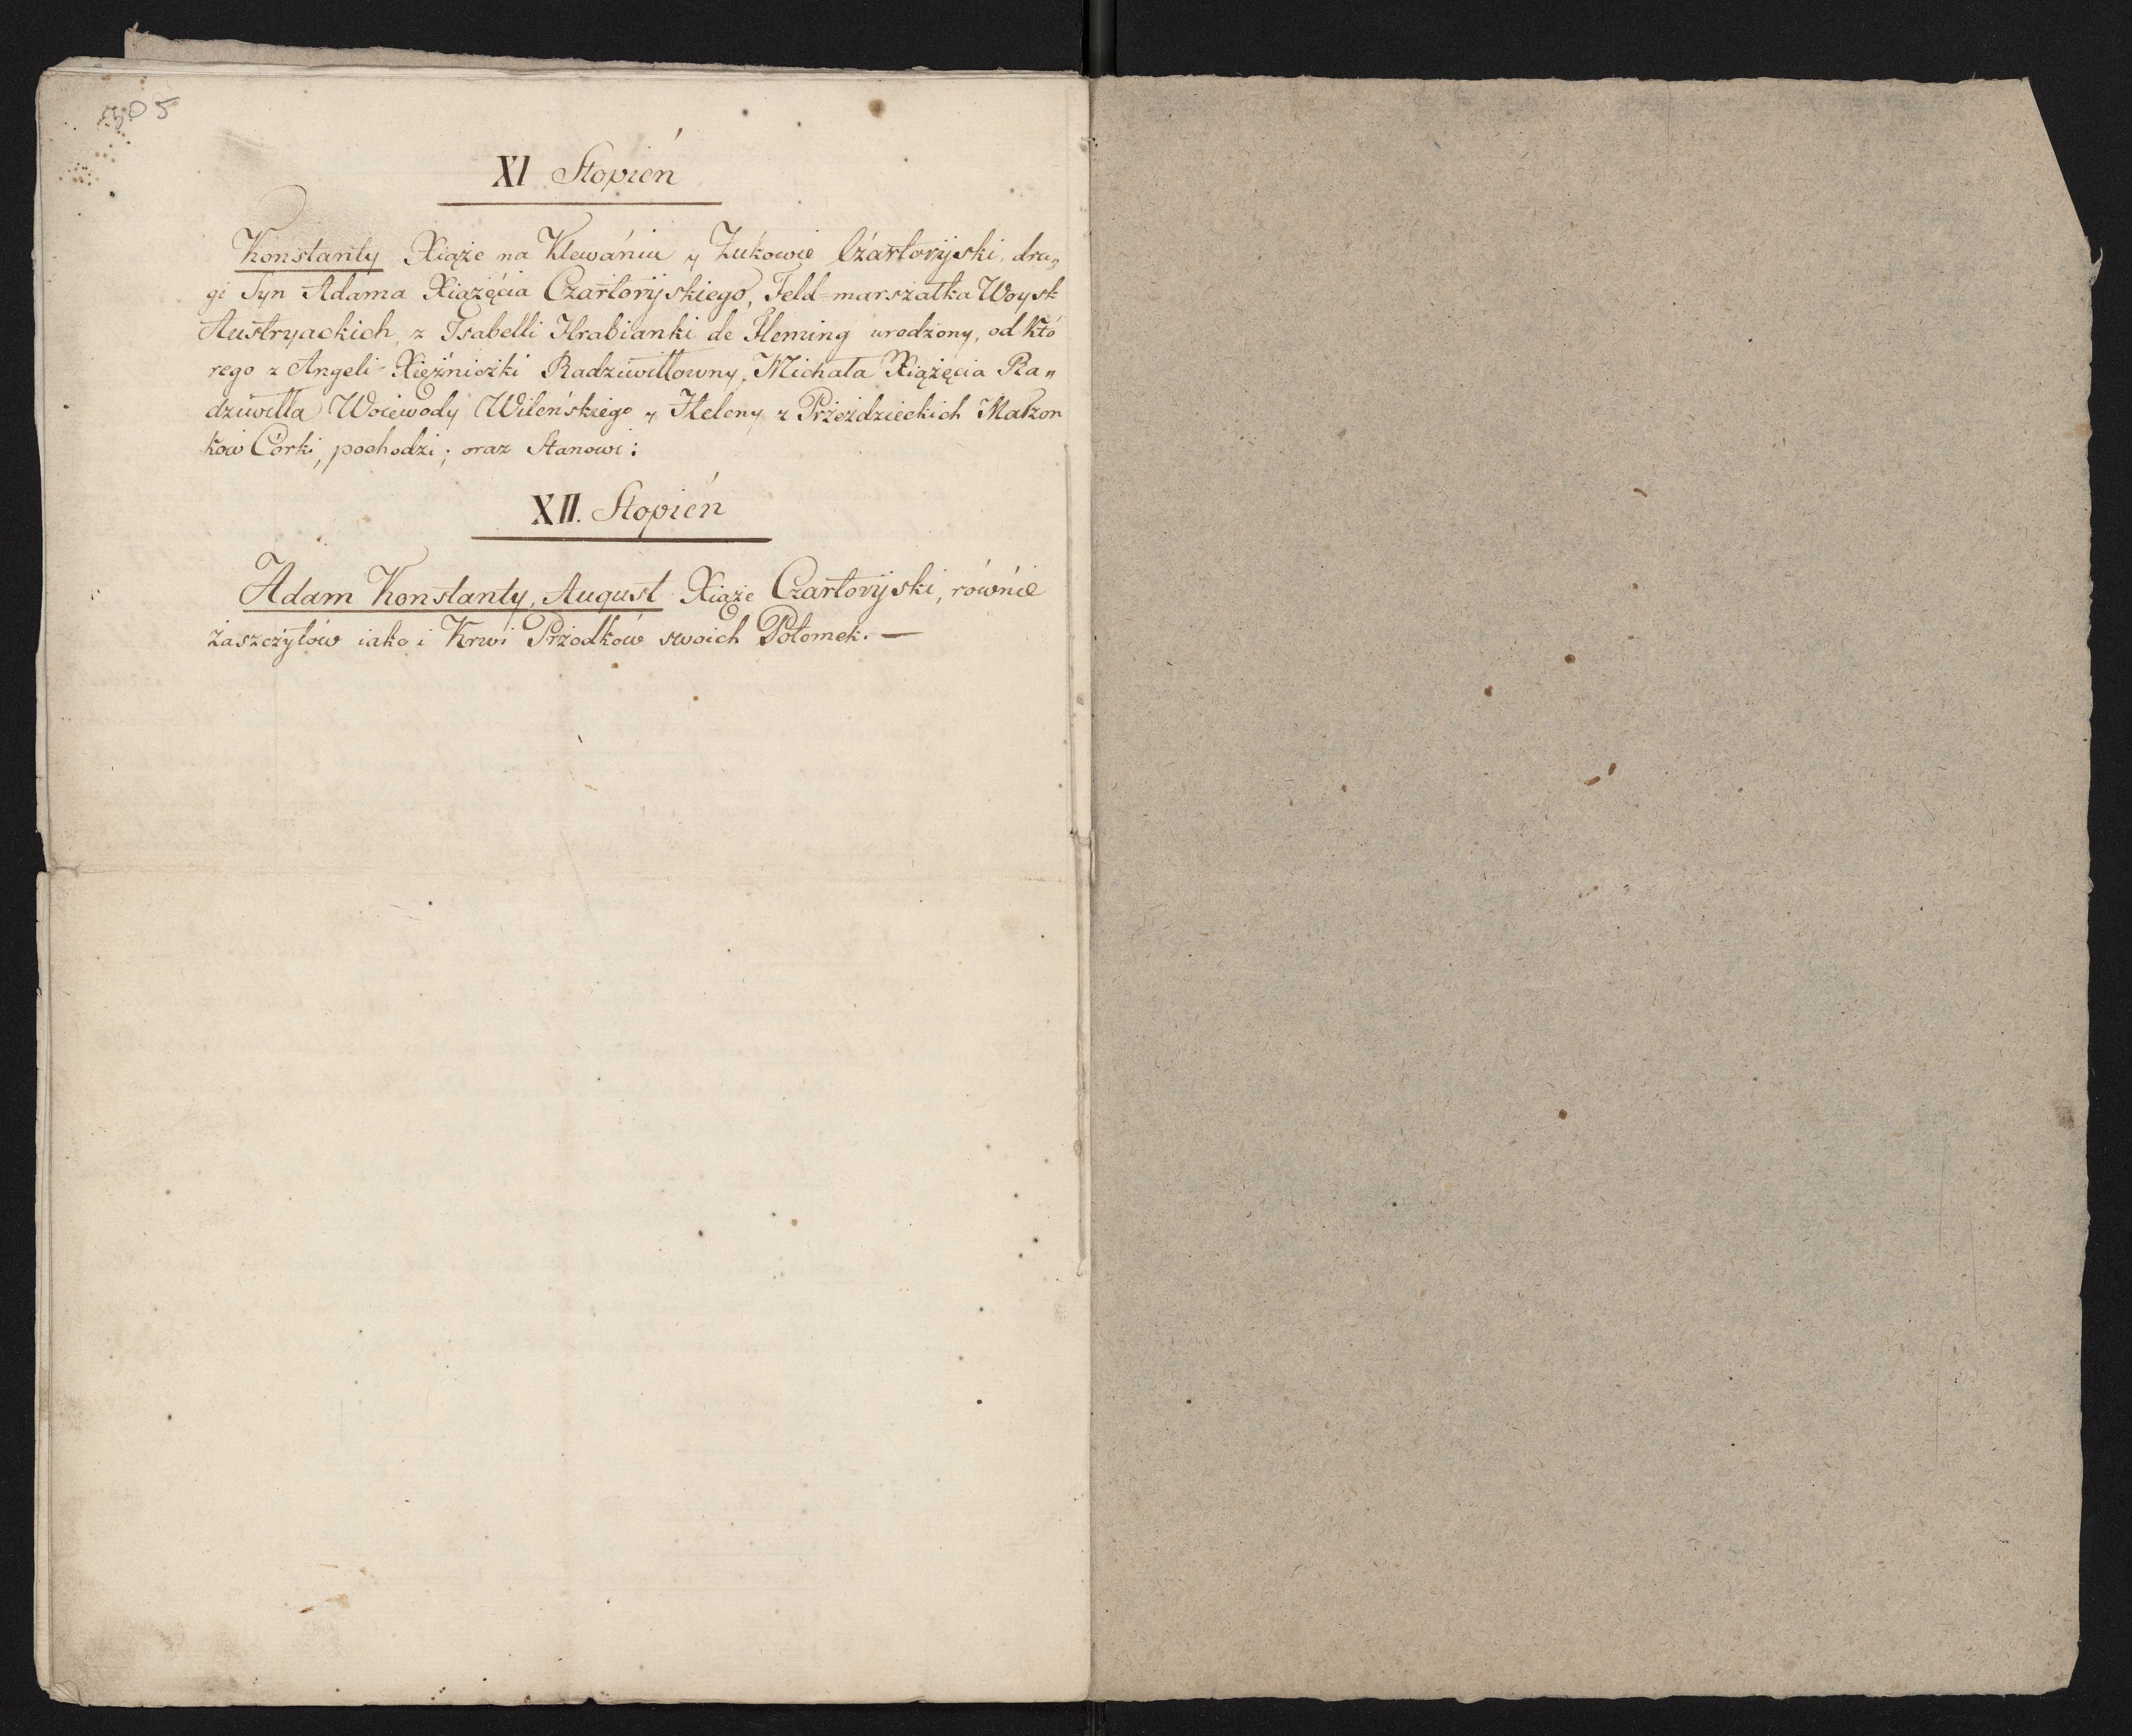 305
XI Stopień
Konstanty Xiąże na Klewániu y Żukowie Czartoryiski, dru„
gi Syn Adama Xiążęcia Czartoryiskiego, Feld=marszałka Woysk
Austryackich, z Isabelli Hrabianki de Fleming urodzony, od któ
rego z Angeli Xiężniczki Radziwiłłowny, Michała Xiążęcia Ra„
dziwiłła Woiewody Wileńskiego y Heleny z Przezdzieckich Małżon
ków Córki, pochodzi; oraz Stanowi:
XII. Stopień
Adam Konstanty, August Xiąże Czartoryiski, równie
zaszczytów iako i Krwi Przodków swoich Potomek. —